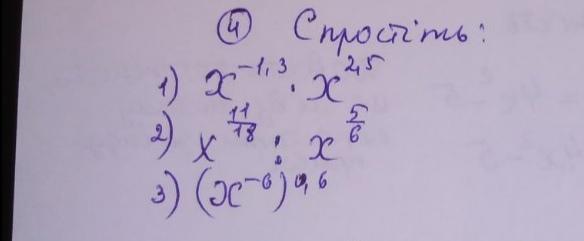 ④ Спростіть:
1) x^{-1,3} · x^{2,5}
2) x^{11/18} : x^{5/6}
3) (x^{-6})^{0,6}